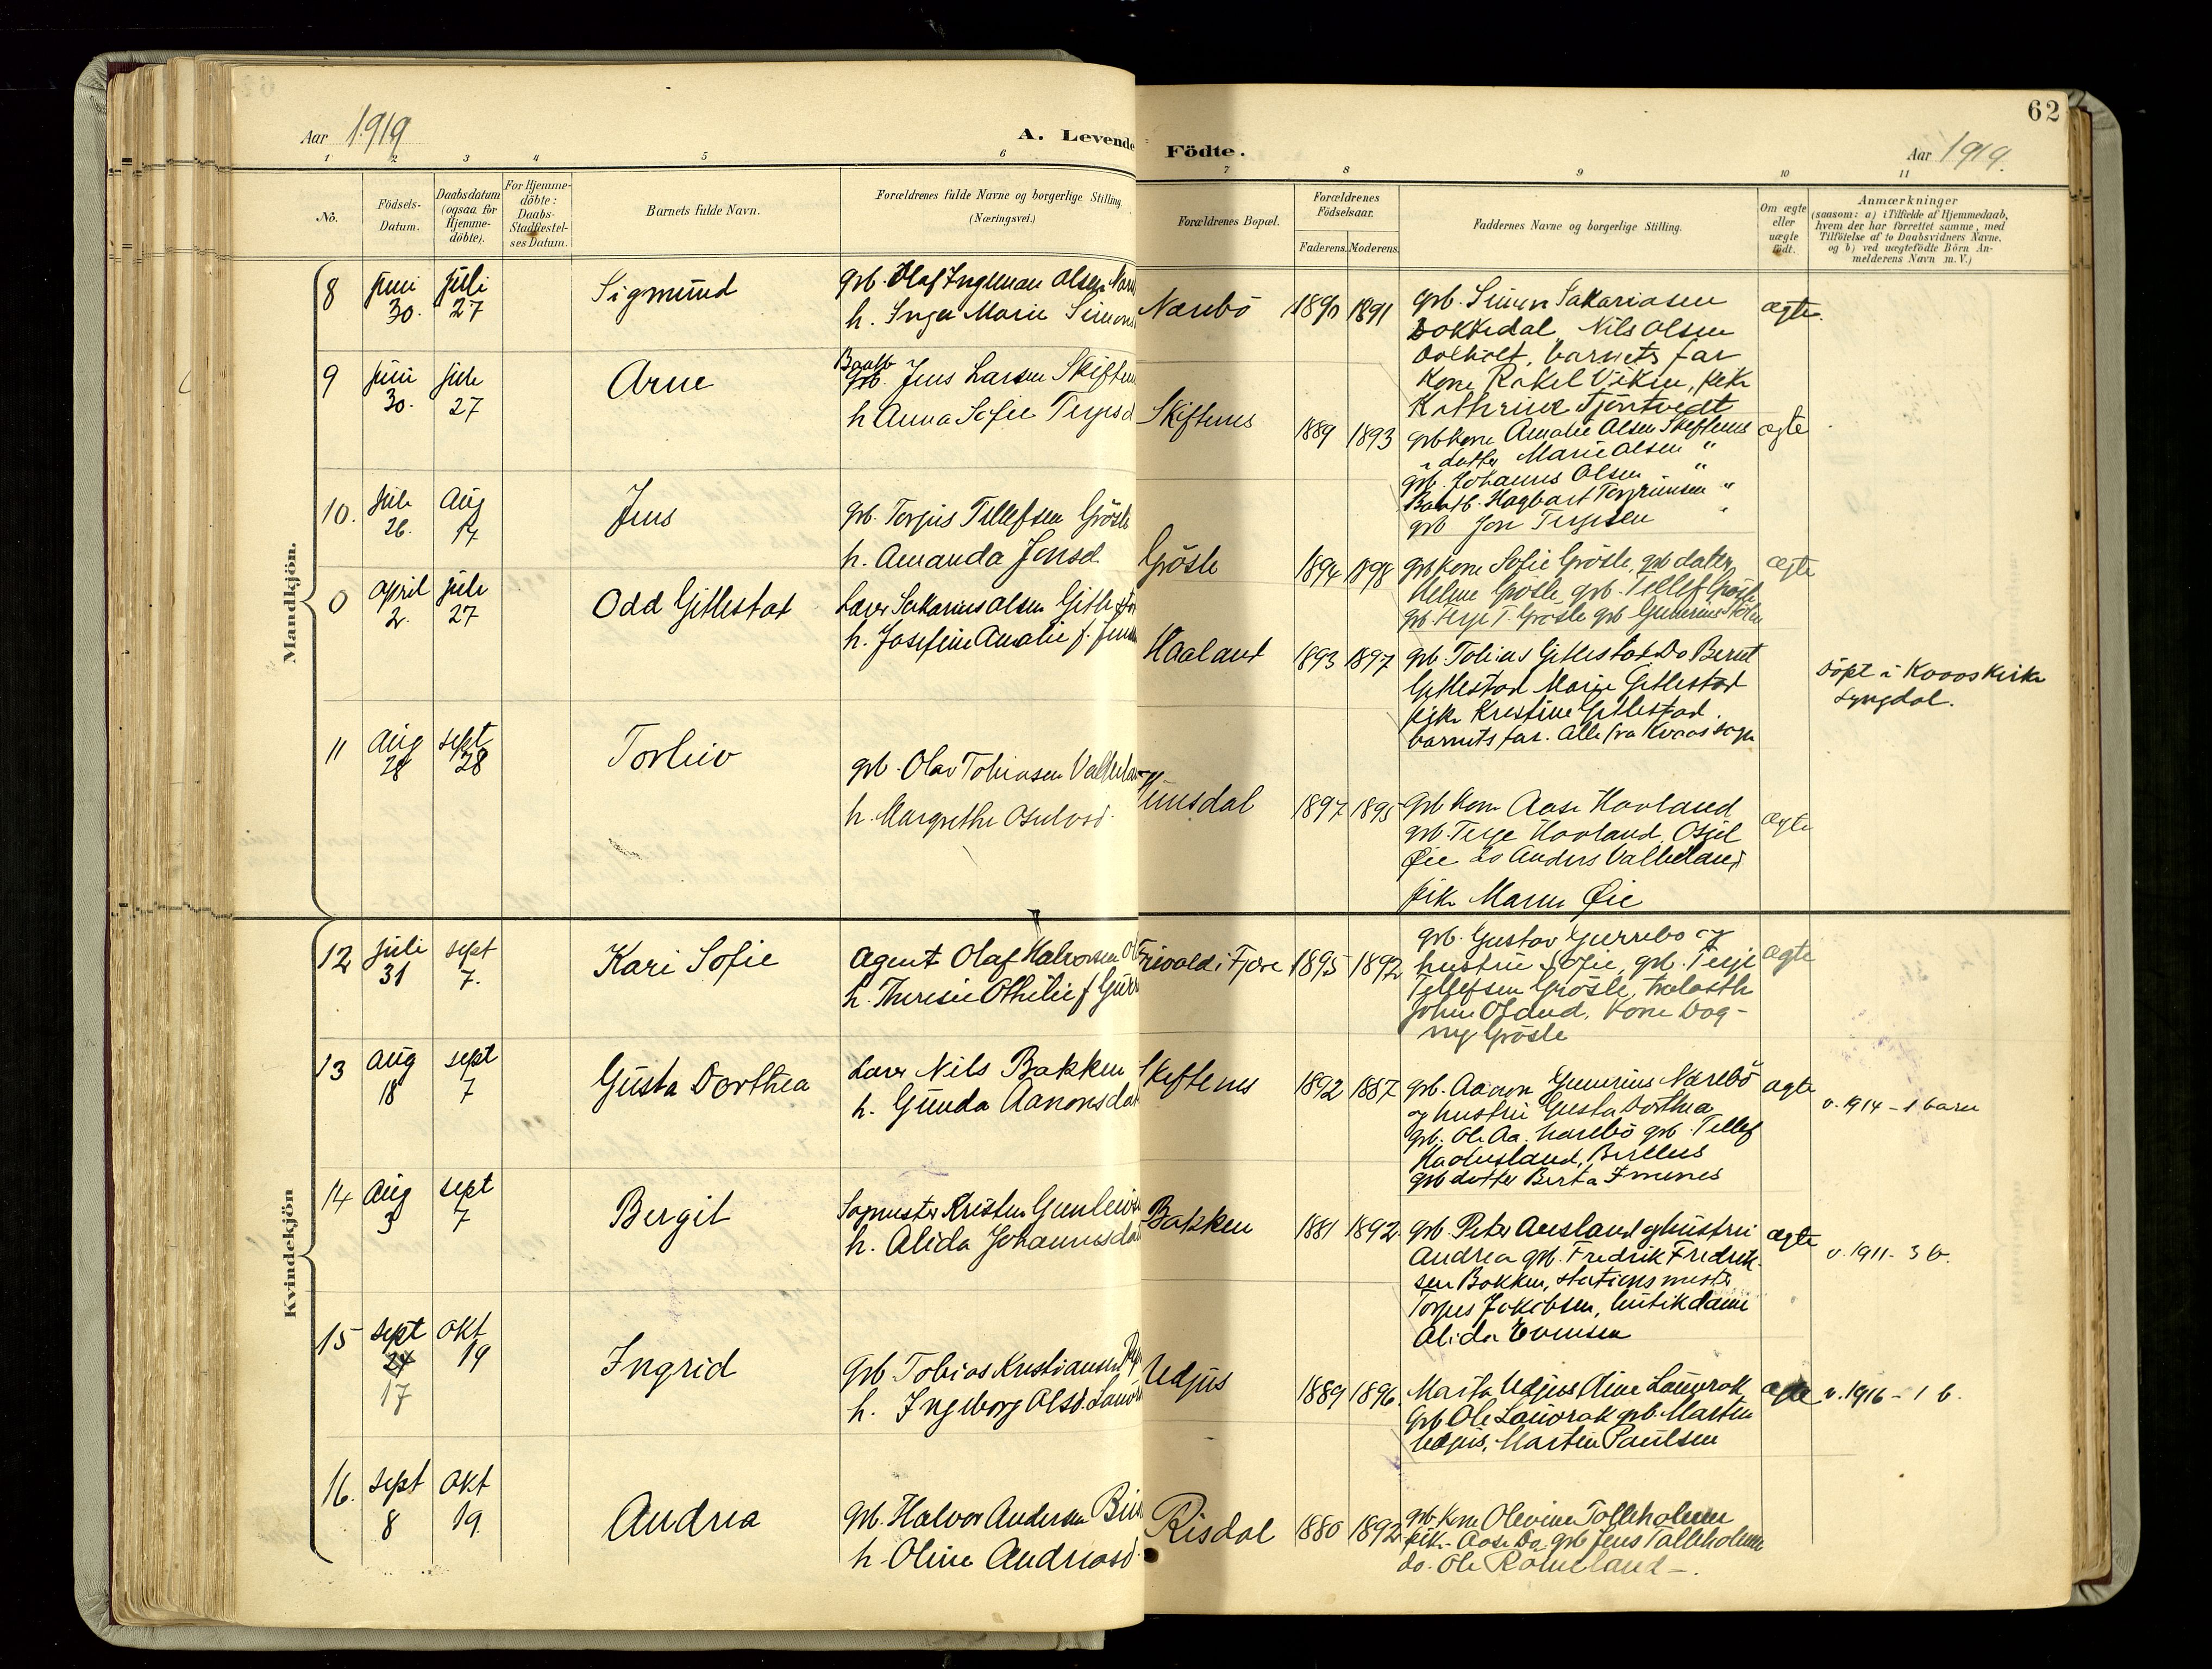 62
Aar 1919
A. Levende Födte.
Aar 1919.
1 2 3 4 5 6 7 8 9 10 11
No.
Födsels-
Datum.
Daabsdatum
(ogsaa for
Hjemme-
döbte).
For Hjemme-
döbte:
Daabs-
Stadfæstel-
ses Datum.
Barnets fulde Navn.
Forældrenes fulde Navne og borgerlige Stilling
(Næringsvei.)
Forældrenes Bopæl.
Forældrenes
Födselsaar.
Faderens. Moderens.
Faddernes Navne og borgerlige Stilling.
Om ægte
eller
uægte
födt.
Anmærkninger
(saasom: a) i Tilfælde af Hjemmedaab,
hvem der har forrettet samme, med
Tilföielse af to Daabsvidners Navne,
og b) ved uægtefödte Börn An-
melderens Navn m. V.)
Mandkjön.
8 juni 30. juli 27 Sigmund
grb. Olaf Ingeman Olsen
h. Inga Marie
Narebö 1890 1891
grb. Simen Sakariasen
Dokkedal, Nils Olsen
barnets far
Kone Rakel Viksn, pike
Kathrine Tjöntvedt
ægte.
9 juni 30. juli 27 Arne
grb. Jens Larsen
h Anna Sofie
Skiftenes 1889 1893
grb kone Amalie Olsen Skiftenes
datter Marie Olsen "
grb. Johannes Olsen "
Hagbart "
grb Jon Terjesen "
ægte
10. juli 26. Aug 17 Jens
grb. Terjus Tellefsen Grösle
h. Amanda Jensd.
Grösle 1894 1898
grb kone Sofie Grösle, grb datter
Helene Grösle grb. Tellef Grösle
grb. Terje T. Grösle grb Gunerius
ægte
0 april 2. juli 27 Odd Gitlestad
Lærer Sakarias Olsen
h. Josefine Amalie f.
Haaland 1893 1897
grb. Tobias Gitlestad Do Bernt
Gitlestad Marie Gitlestad
pike Kristine Gitlestad.
barnets far. Alle fra Kvaas sogn
Döpt i Kvaas Kirke
Lyngdal.
11 Aug 28 sept 28 Torleiv
grb. Olav Tobiasen
h. Margrethe Osulvsd.
1897 1895
grb kone Aase Hovland
grb. Terje Hovland, Osjul
Øie do Anders Valbeland
pike Maren Øie
ægte
Kvindekjön
12 juli 31 sept 7. Kari Sofie
Agent Olaf Halvorsen
h. Theresie Othilie f
Frivold i Fjære 1895 1892
grb. Gustav Gurrebo og
hustru Sofie, grb. Terje
Tellefsen Grösle,
John Osland, kone Dag-
ny Grösle
ægte
13 aug 18 sept 7 Gusta Dorthea
Lærer Nils Bakken
h. Gunda Aanonsdat
Skiftenes 1892 1887
grb. Aanon Gunerius Narebö
og hustru Gusta Dorthea
grb. Ole Aa. Narebö grb. Tellef
Birkenes
grb datter Berta
ægte
v. 1914 - 1 barn
14 Aug 3 sept 7 Bergit
Kristen
h. Alida Johannesdat
Bakken 1881 1892
grb. Peter Ausland og hustru
Andrea grb. Fredrik Fredrik-
sen Bakken, stationsmester
Torjus Jakobsen, butikdame
Alida Evensen
ægte
v. 1911 - 3 b.
15 sept 17 okt 19 Ingrid
grb. Tobias Kristiansen
h. Ingeborg Olsd.
Udjus 1889 1896
Marta Udjus Oline Lauvrak
grb Ole Lauvrak grb. Martin
Udjus, Martin Paulsen
ægte
v. 1916 - 1 b.
16. sept 8 okt 19. Andrea
grb. Halvor Andersen
h. Oline Andreasd.
Risdal 1880 1892
grb. kone Olevine Tolleholmen
pike Aase Do grb Jens Tolleholmen
do. Ole Rameland -.